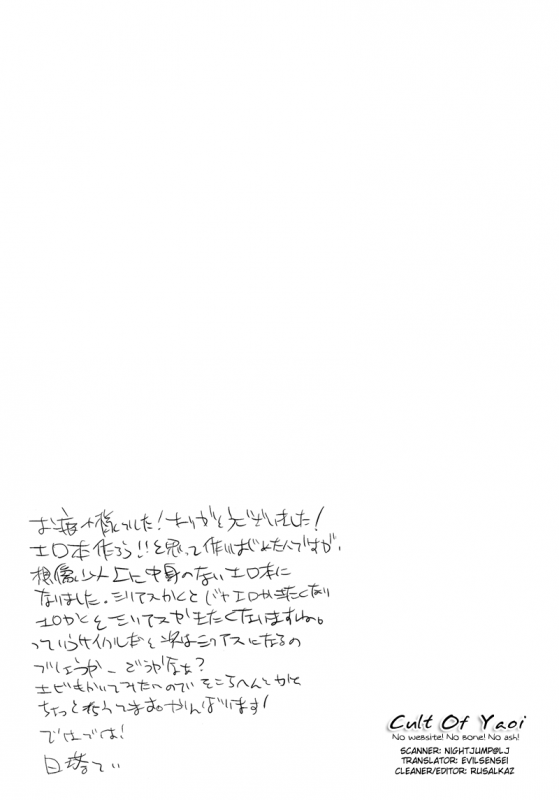 お疲れ様でした!ありがとうございました!
エロ本作ろう!!と思って作りはじめたんですが、
想像以上に中身のないエロ本に
なりました。シリアスかくとギャグエロが
エロかくとシリアスがかきたくなりますね。
っていうサイクルだと次はシリアスになるの
でしょうか… どうかなぁ?
もかいてみたいのでそこらへんとかを
ちょっと考えてます。がんばります!
ではでは!
Cult Of Yaoi
No website! No bone! No ash!
SCANNER: NIGHTJUMP@LJ
TRANSLATOR: EVILSENSEI
CLEANER/EDITOR: RUSALKAZ